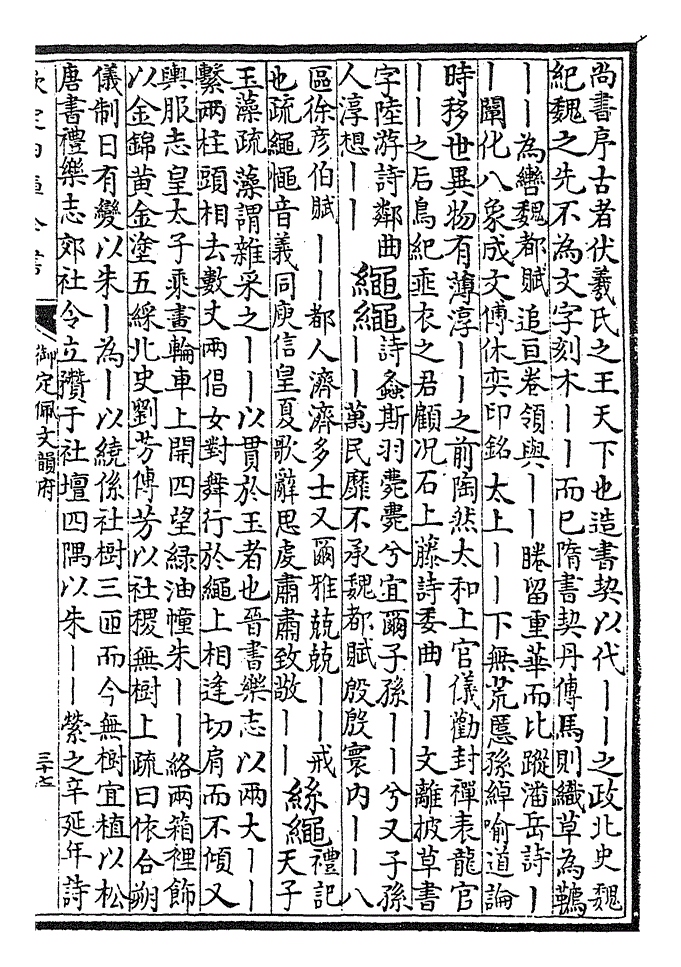 尚書序古者伏羲氏之王天下也造書契以代丨丨之政北史魏
紀魏之先不為文字刻木丨丨而已隋書契丹傳馬則織草為韉
丨丨為轡魏都賦追亘卷領與丨丨睠留重華而比蹤潘岳詩丨
丨闡化八象成文傅休奕印銘太上丨丨下無荒慝孫綽喻道論
時移世異物有薄淳丨丨之前陶然太和上官儀勸封禪表龍官
丨丨之后鳥紀垂衣之君顧况石上藤詩委曲丨丨文離披草書
字陸游詩鄰曲繩繩詩螽斯羽薨薨兮宜爾子孫丨丨兮又子孫
人淳想丨丨丨丨萬民靡不承魏都賦殷殷寰内丨丨八
區徐彦伯賦丨丨都人濟濟多士又爾雅兢兢丨丨戒
也疏繩憴音義同庾信皇夏歌辭思虔肅肅致敬丨丨絲繩禮記
天子
玉藻疏藻謂雜采之丨丨以貫於玉者也晉書樂志以兩大丨丨
繫兩柱頭相去數丈兩倡女對舞行於繩上相逢切肩而不傾又
輿服志皇太子乘畫輪車上開四望緑油幢朱丨丨絡兩箱裡飾
以金錦黄金塗五綵北史劉芳傳芳以社稷無樹上疏曰依合朔
儀制日有變以朱丨為丨以繞係社樹三匝而今無樹宜植以松
唐書禮樂志郊社令立攢于社壇四隅以朱丨丨縈之辛延年詩
欽定四庫全書
御定佩文韻府
三十七